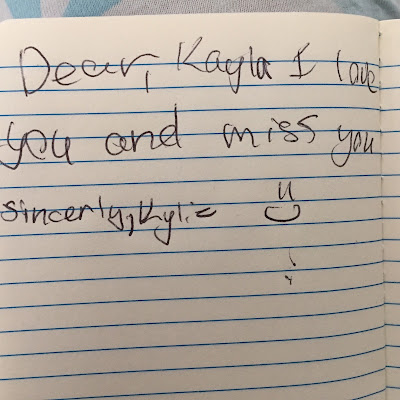 Dear, Kayla I love
you and miss you
sincerly, Kylie